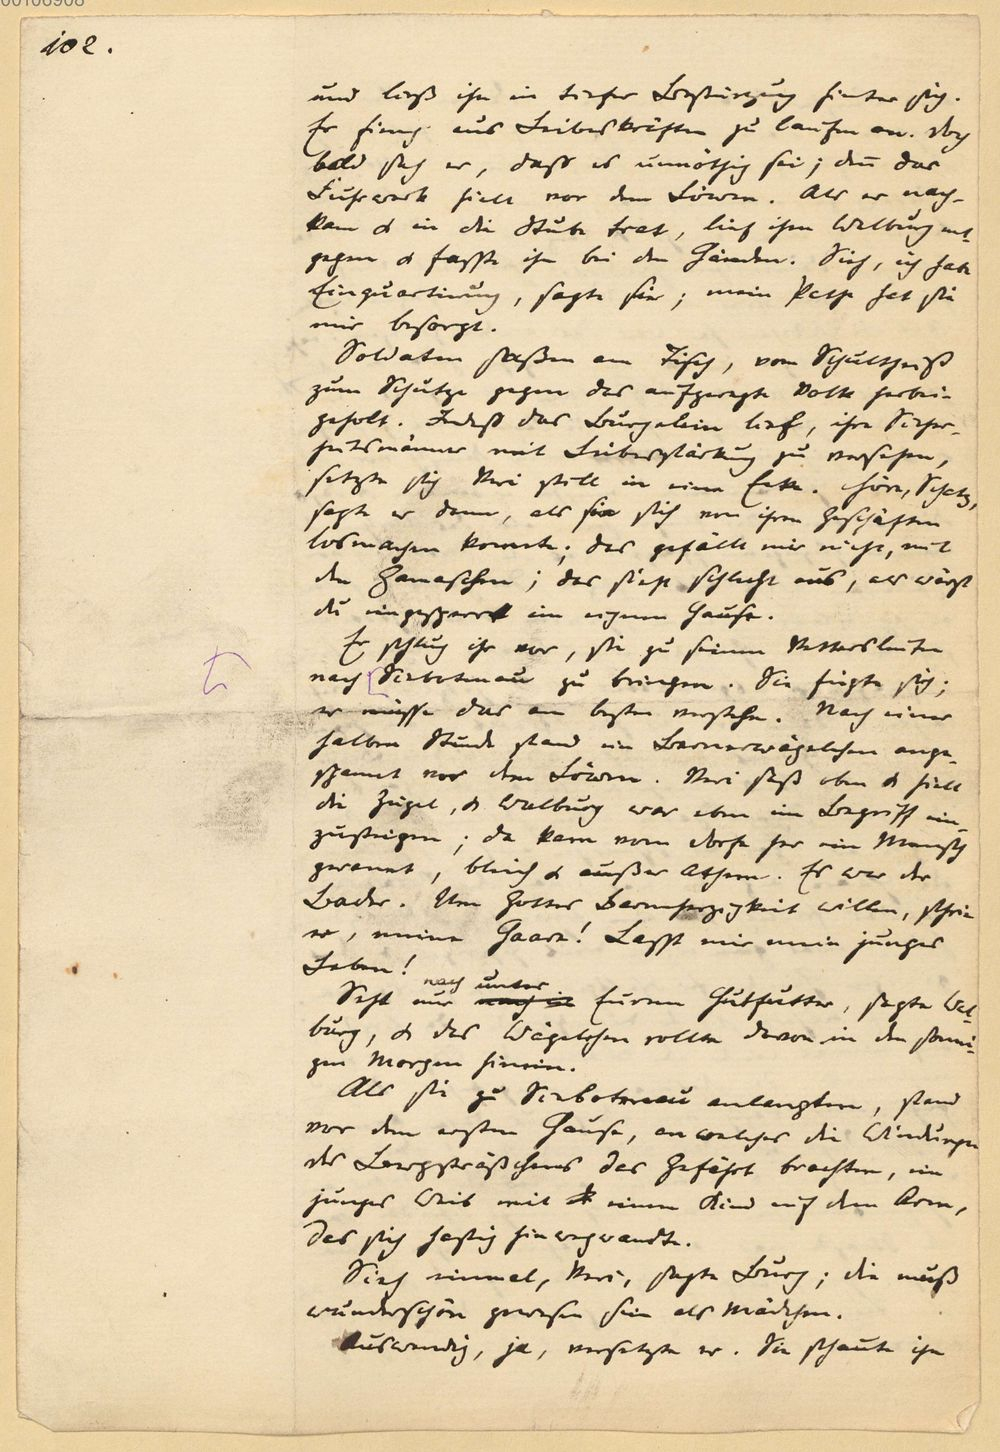 00106908
102.
und ließ ihn in tiefer Bestürzung hinter sich.
Er fieng aus Leibeskräften zu laufen an. Doch
bald sah er, dass es unnöthig sei; den̅ das
Fuhrwerk hielt vor dem Löwen. Als er nach-
kam & in die Stube trat, lief ihm Walburg ent-
gegen & fasste ihn bei den Händen. Sieh, ich habe
Einquartirung, sagte sie; mein Pethe hat sie
mir besorgt.
Soldaten saßen am Tisch, vom Schultheiß
zum Schutze gegen das aufgeregte Volk herbei-
geholt. Indeß das Burgelein lief, ihre Sicher-
heitsmänner mit Leibesstärkung zu versehen,
setzte sich Veri still in eine Ecke. Höre, Schatz,
sagte er dann, als sie sich von ihren Geschäften
losmachen konnte; das gefällt mir nicht, mit
den Gamaschen; das sieht schlecht aus, als wärst
du eingesperrt im eignen Hause.
Er schlug ihr vor, sie zu seinen Vettersleuten
nach Siebotenau zu bringen. Sie fügte sich;
er müsse das am besten verstehn. Nach einer
halben Stunde stand ein Bernerwägelchen ange-
spannt vor dem Löwen. Veri saß oben & hielt
die Zügel, & Walburg war eben im Begriff ein-
zusteigen; da kam vom Dorfe her ein Mensch
gerannt, bleich & außer Athem. Es war der
Bader. Um Gottes Barmherzigkeit willen, schrie
er, meine Haare! Lasst mir mein junges
Leben!
nach unter
Seht nur nach in Eurem Hutfutter, sagte Wal-
burg, & das Wägelchen rollte davon in den sonni-
gen Morgen hinein.
Als sie zu Siebotenau anlangten, stand
vor dem ersten Hause, an welches die Windungen
des Bergsträßchens das Gefährt brachten, ein
junges Weib mit einem Kind auf dem Arm,
das sich hastig hinwegwandte.
Sieh einmal, Veri, sagte Burg; die muß
wunderschön gewesen sein als Mädchen.
Auswendig, ja, versetzte er. Sie schaute ihn